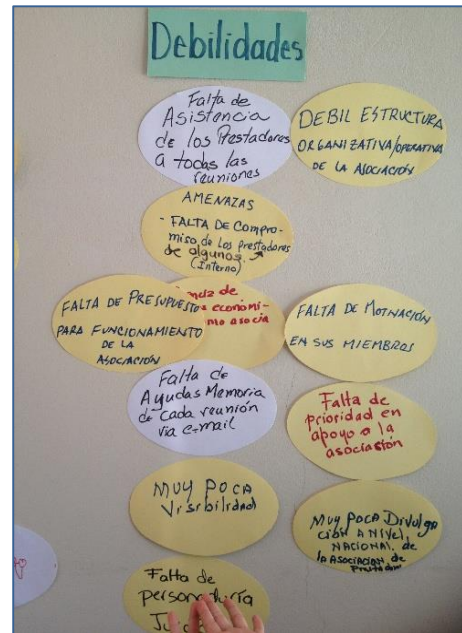 Debilidades
Falta de
Asistencia
de los Prestadores
a todas las
reuniones
DEBIL ESTRUCTURA
ORGANIZATIVA/OPERATIVA
DE LA ASOCIACIÓN
AMENAZAS
- FALTA DE Compro-
miso de los prestadores
de algunos.
(Interno)
FALTA DE PRESUPUESTO
PARA FUNCIONAMIENTO
DE LA
ASOCIACIÓN
de
económi-
mo asocia
FALTA DE MOTIVACIÓN
EN SUS MIEMBROS
Falta de
Ayudas Memoria
de cada reunión
via e-mail
Falta de
prioridad en
apoyo a la
asociasión
MUY POCA
Visibilidad
MUY POCA Divulga
ción A NIVEL
NACIONAL de
la ASOCIACION de
Falta de
personería